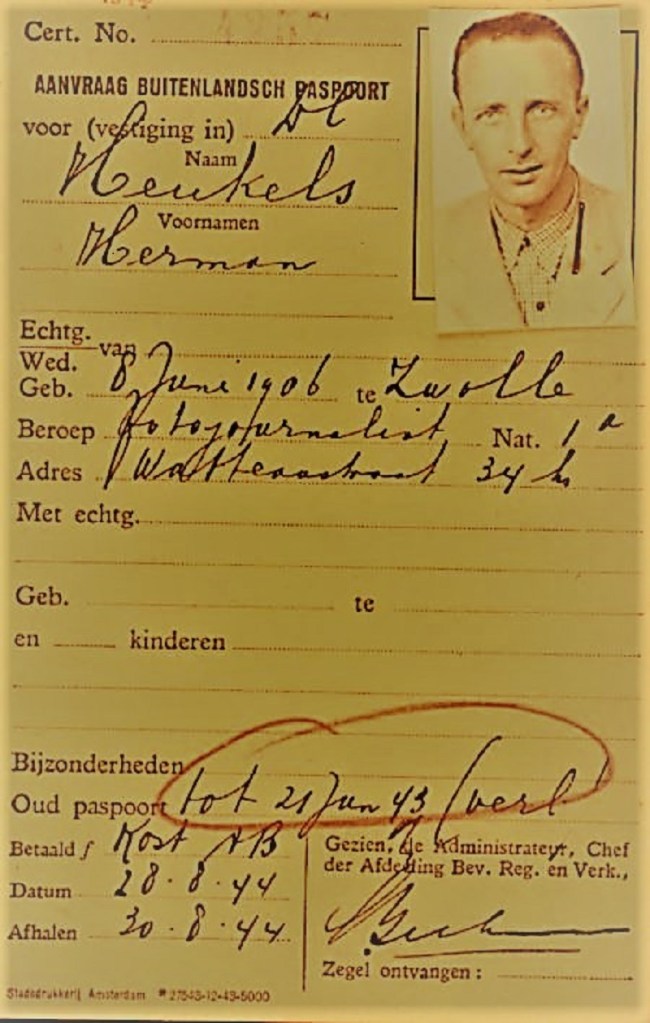 Cert. No.
AANVRAAG BUITENLANDSCH PASPOORT
voor (vestiging in)
Naam
Heukels
Voornamen
Herman
Echtg. van
Wed.
Geb. 8 Juni 1906 te Zwolle
Beroep fotojournalist Nat. 1 a
Adres Watteaustraat 34 hs
Met echtg.
Geb. te
en kinderen
Bijzonderheden
Oud paspoort tot 21 Jun 43 (verl)
Betaald f Kost
Datum 28.8.44
Afhalen 30.8.44
Gezien, de Administrateur, Chef
der Afdeeling Bev. Reg. en Verk.,
Zegel ontvangen :
Stadsdrukkerij Amsterdam * 27543-12-43-5000